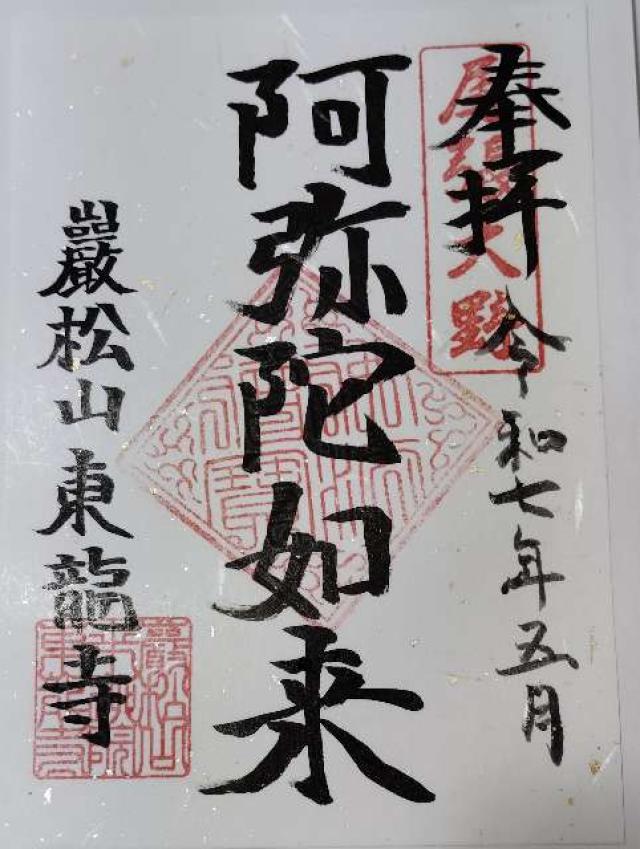 奉拝
令和七年五月
阿弥陀如来
巖松山東龍寺